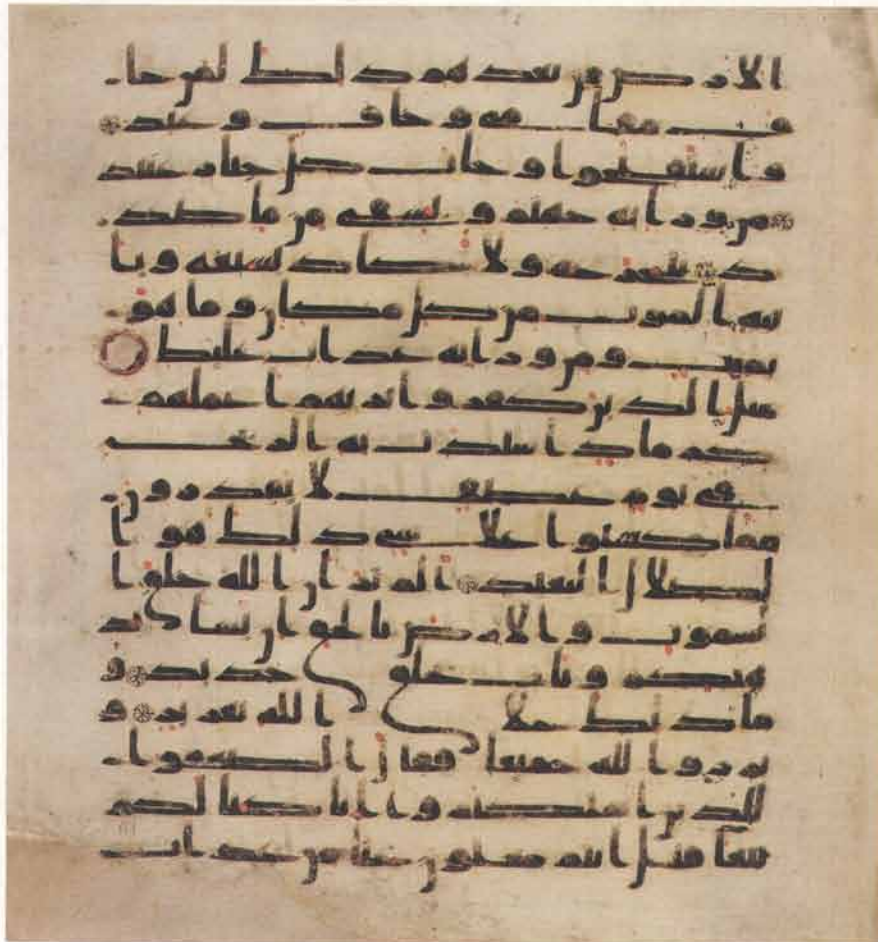 الارض من بعدهم ذلك لمن خا
ف مقامى وخاف وعيد
واستفتحوا وخاب كل جبار عنيد
من ورائه جهنم ويسقى من ما صد
يد يتجرعه ولا يكاد يسيغه ويا
تيه الموت من كل مكان وما هو
بميت ومن ورائه عذاب غليظ
مثل الذين كفروا بربهم اعملهم
كرماد اشتدت به الريح
فى يوم عاصف لا يقدرون
مما كسبوا على شى ذلك هو ا
لضلل البعيد الم تر ان الله خلق ا
لسموت والارض بالحق ان يشا يذ
هبكم ويات بخلق جديد و
ما ذلك على الله بعزيز و
برزوا لله جميعا فقال الضعفوا
للذين استكبروا انا كنا لكم
تبعا فهل انتم مغنون عنا من عذاب